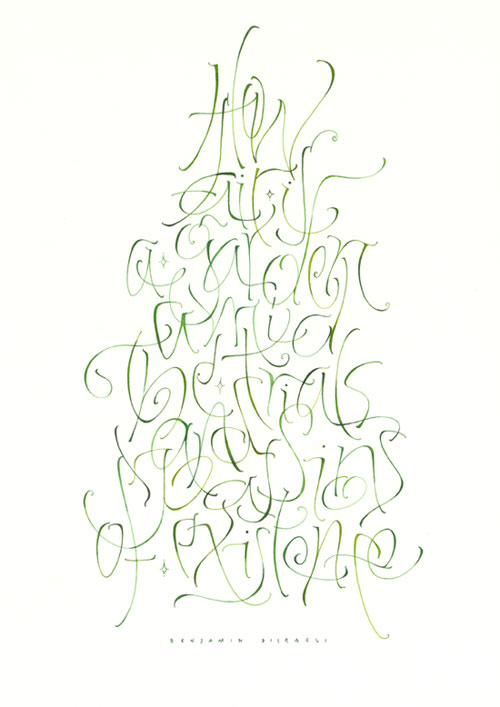 How
fair is
a garden
amid
the trials
and
passions
of existence
BENJAMIN DISRAELI